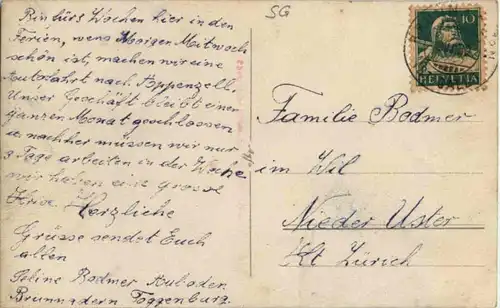 SG
Bin fürs Wochen hier in den
Ferien, wens Morgen Mitwoch
schön ist, machen wir eine
Autofahrt nach Appenzell.
Unser Geschäft bleibt einen
ganzen Monat geschlossen
u. nachher müssen wir nur
3 Tage arbeiten in der Woche
wir haben eine grosse
Krise. Herzliche
Grüsse sendet Euch
allen
Seline Bodmer
Brunnadern Toggenburg.
10
HELVETIA
Familie Bodmer
im Wil
Nieder Uster
Kt Zürich